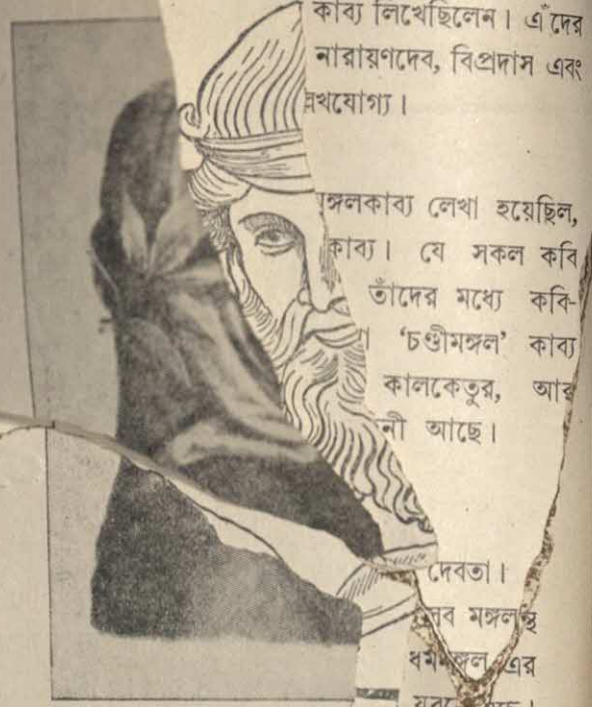 কাব্য লিখেছিলেন। এঁদের
নারায়ণদেব, বিপ্রদাস এবং
খযোগ্য।
ঙ্গলকাব্য লেখা হয়েছিল,
কাব্য। যে সকল কবি
তাঁদের মধ্যে কবি-
‘চণ্ডীমঙ্গল’ কাব্য
কালকেতুর, আর
নী আছে।
দেবতা।
মঙ্গল
ধর্মমঙ্গল এর